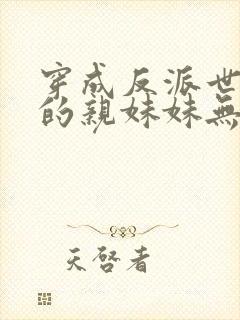 穿成反派世
的親妹妹無
天啓者